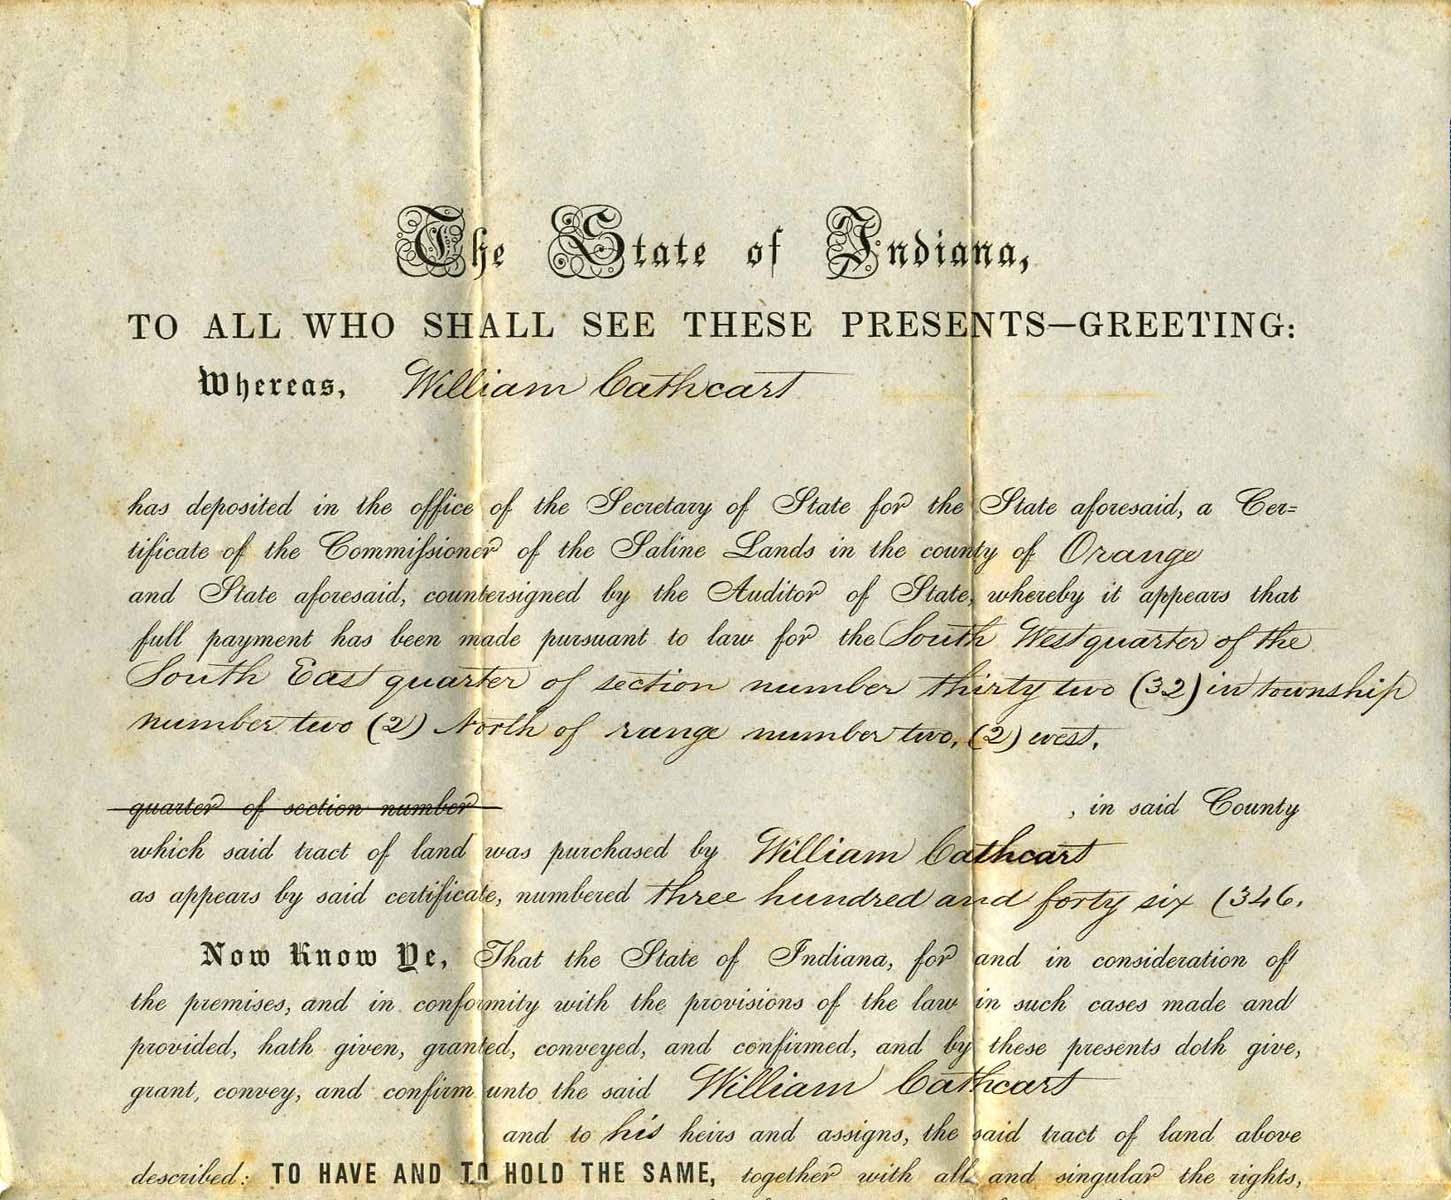 The State of Indiana,
TO ALL WHO SHALL SEE THESE PRESENTS—GREETING:
Whereas, William Cathcart
has deposited in the office of the Secretary of State for the State aforesaid, a Cer=
tificate of the Commissioner of the Saline Lands in the county of Orange
and State aforesaid, countersigned by the Auditor of State, whereby it appears that
full payment has been made pursuant to law for the South West quarter of the
South East quarter of section number thirty two (32) in township
number two (2) North of range number two, (2) west.
quarter of section number , in said County
which said tract of land was purchased by William Cathcart
as appears by said certificate, numbered three hundred and forty six (346.
Now Know Ye, That the State of Indiana, for and in consideration of
the premises, and in conformity with the provisions of the law in such cases made and
provided, hath given, granted, conveyed, and confirmed, and by these presents doth give,
grant, convey, and confirm unto the said William Cathcart
and to his heirs and assigns, the said tract of land above
described: TO HAVE AND TO HOLD THE SAME, together with all and singular the rights,